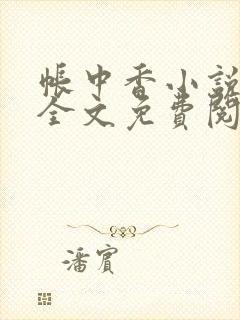 帳中香小說
全文免費閱
潘賓